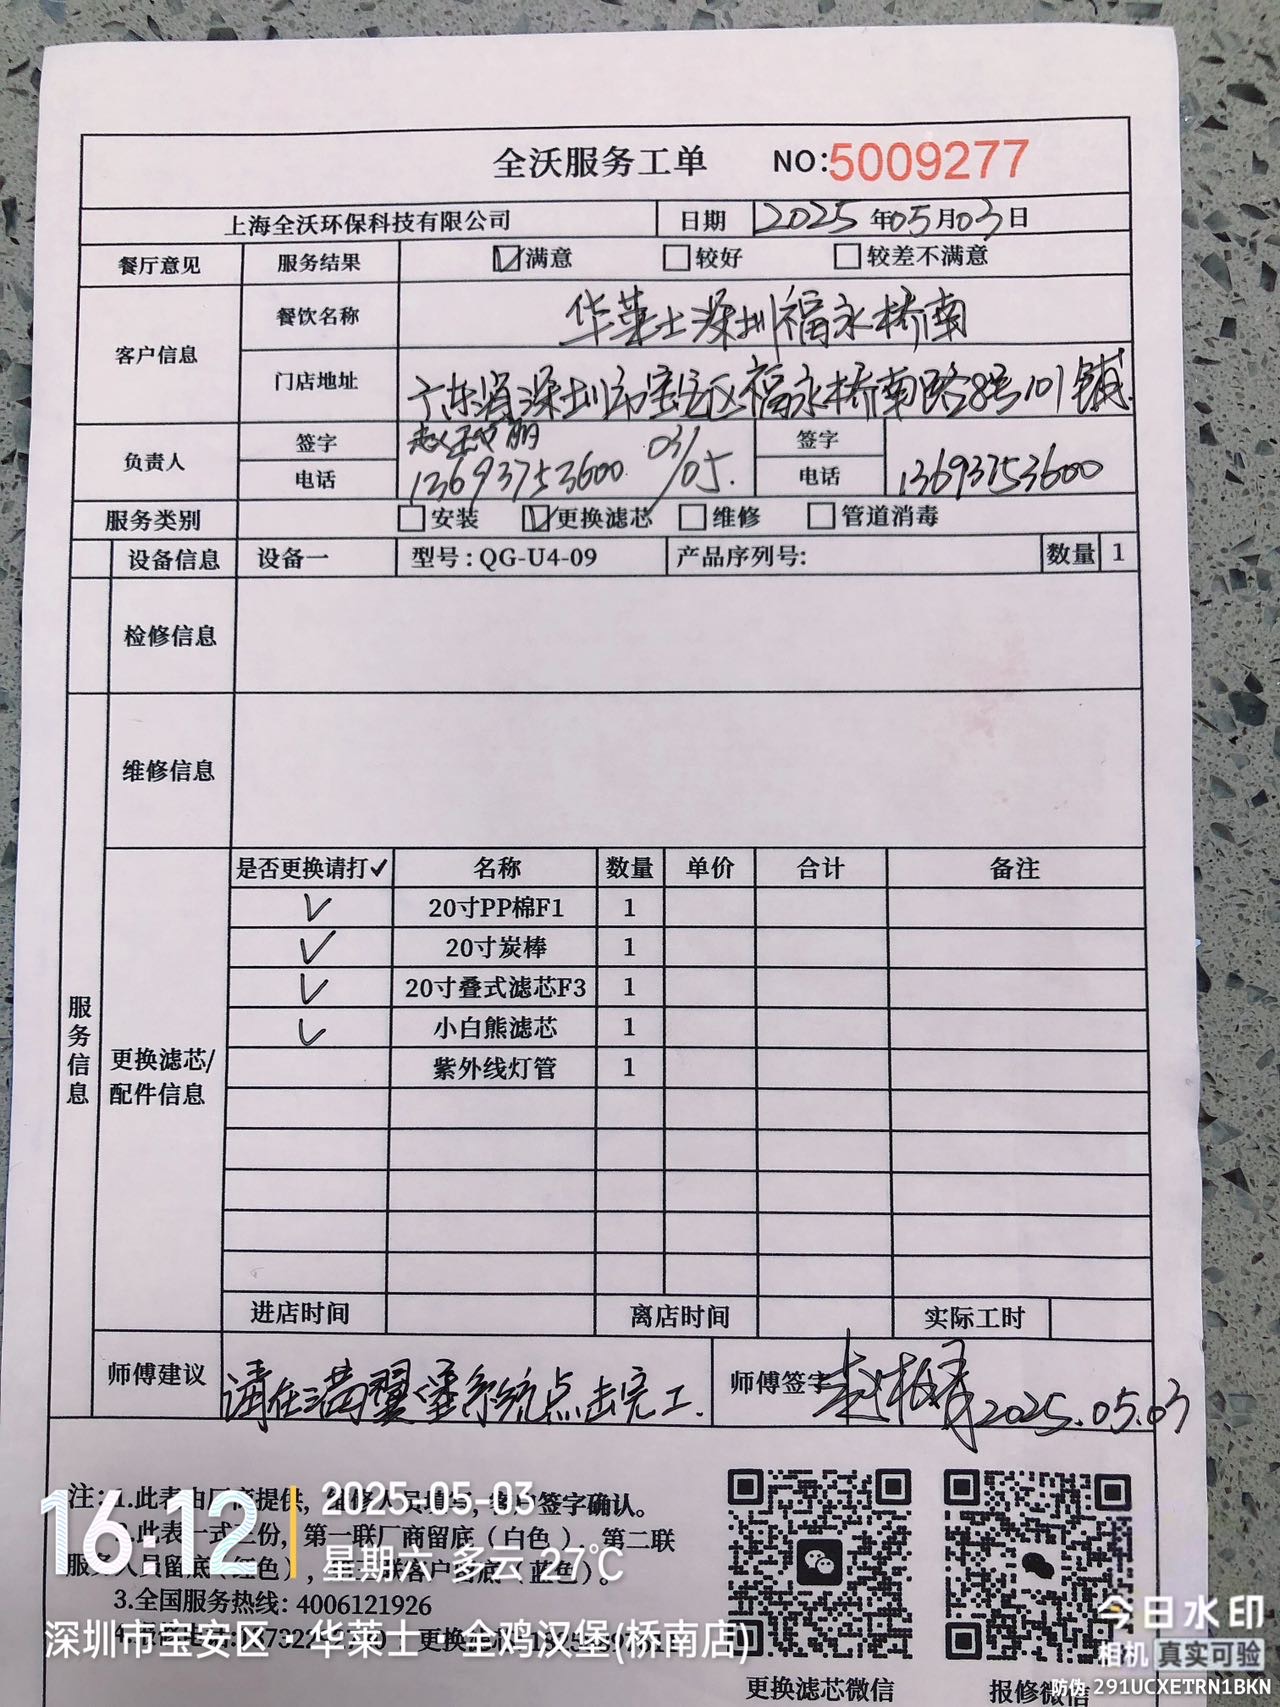 全沃服务工单 NO:5009277
上海全沃环保科技有限公司 日期 2025年05月03日
餐厅意见 服务结果 ☑满意 □较好 □较差不满意
客户信息 餐饮名称 华莱士深圳福永桥南
门店地址 广东省深圳市宝安区福永桥南路8号101铺.
负责人 签字 03/05. 签字
电话 13693753600 电话 13693753600
服务类别 □安装 ☑更换滤芯 □维修 □管道消毒
设备信息 设备一 型号：QG-U4-09 产品序列号: 数量 1
检修信息
维修信息
服务信息
更换滤芯/
配件信息
是否更换请打✓ 名称 数量 单价 合计 备注
✓ 20寸PP棉F1 1
✓ 20寸炭棒 1
✓ 20寸叠式滤芯F3 1
✓ 小白熊滤芯 1
紫外线灯管 1
进店时间 离店时间 实际工时
师傅建议 请在满翼系统点击完工. 师傅签字 2025.05.03
注:1.此表由厂商提供, 签字确认。
2.此表一式三份，第一联厂商留底（白色），第二联
服务人员留底（红色），第三联客户留底（蓝色）。
3.全国服务热线: 4006121926
更换滤芯微信 报修微信
16:12
2025-05-03
星期六 多云 27℃
深圳市宝安区·华莱士·全鸡汉堡(桥南店)
今日水印
相机 真实可验
防伪 291UCXETRN1BKN